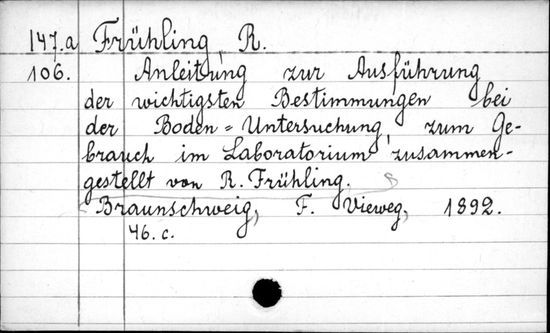 147.a Frühling, R.
106. Anleitung zur Ausführung
der wichtigsten Bestimmungen bei
der Boden-Untersuchung, zum Ge-
brauch im Laboratorium zusammen-
gestellt von R. Frühling.
Braunschweig, F. Vieweg, 1892.
46. c.